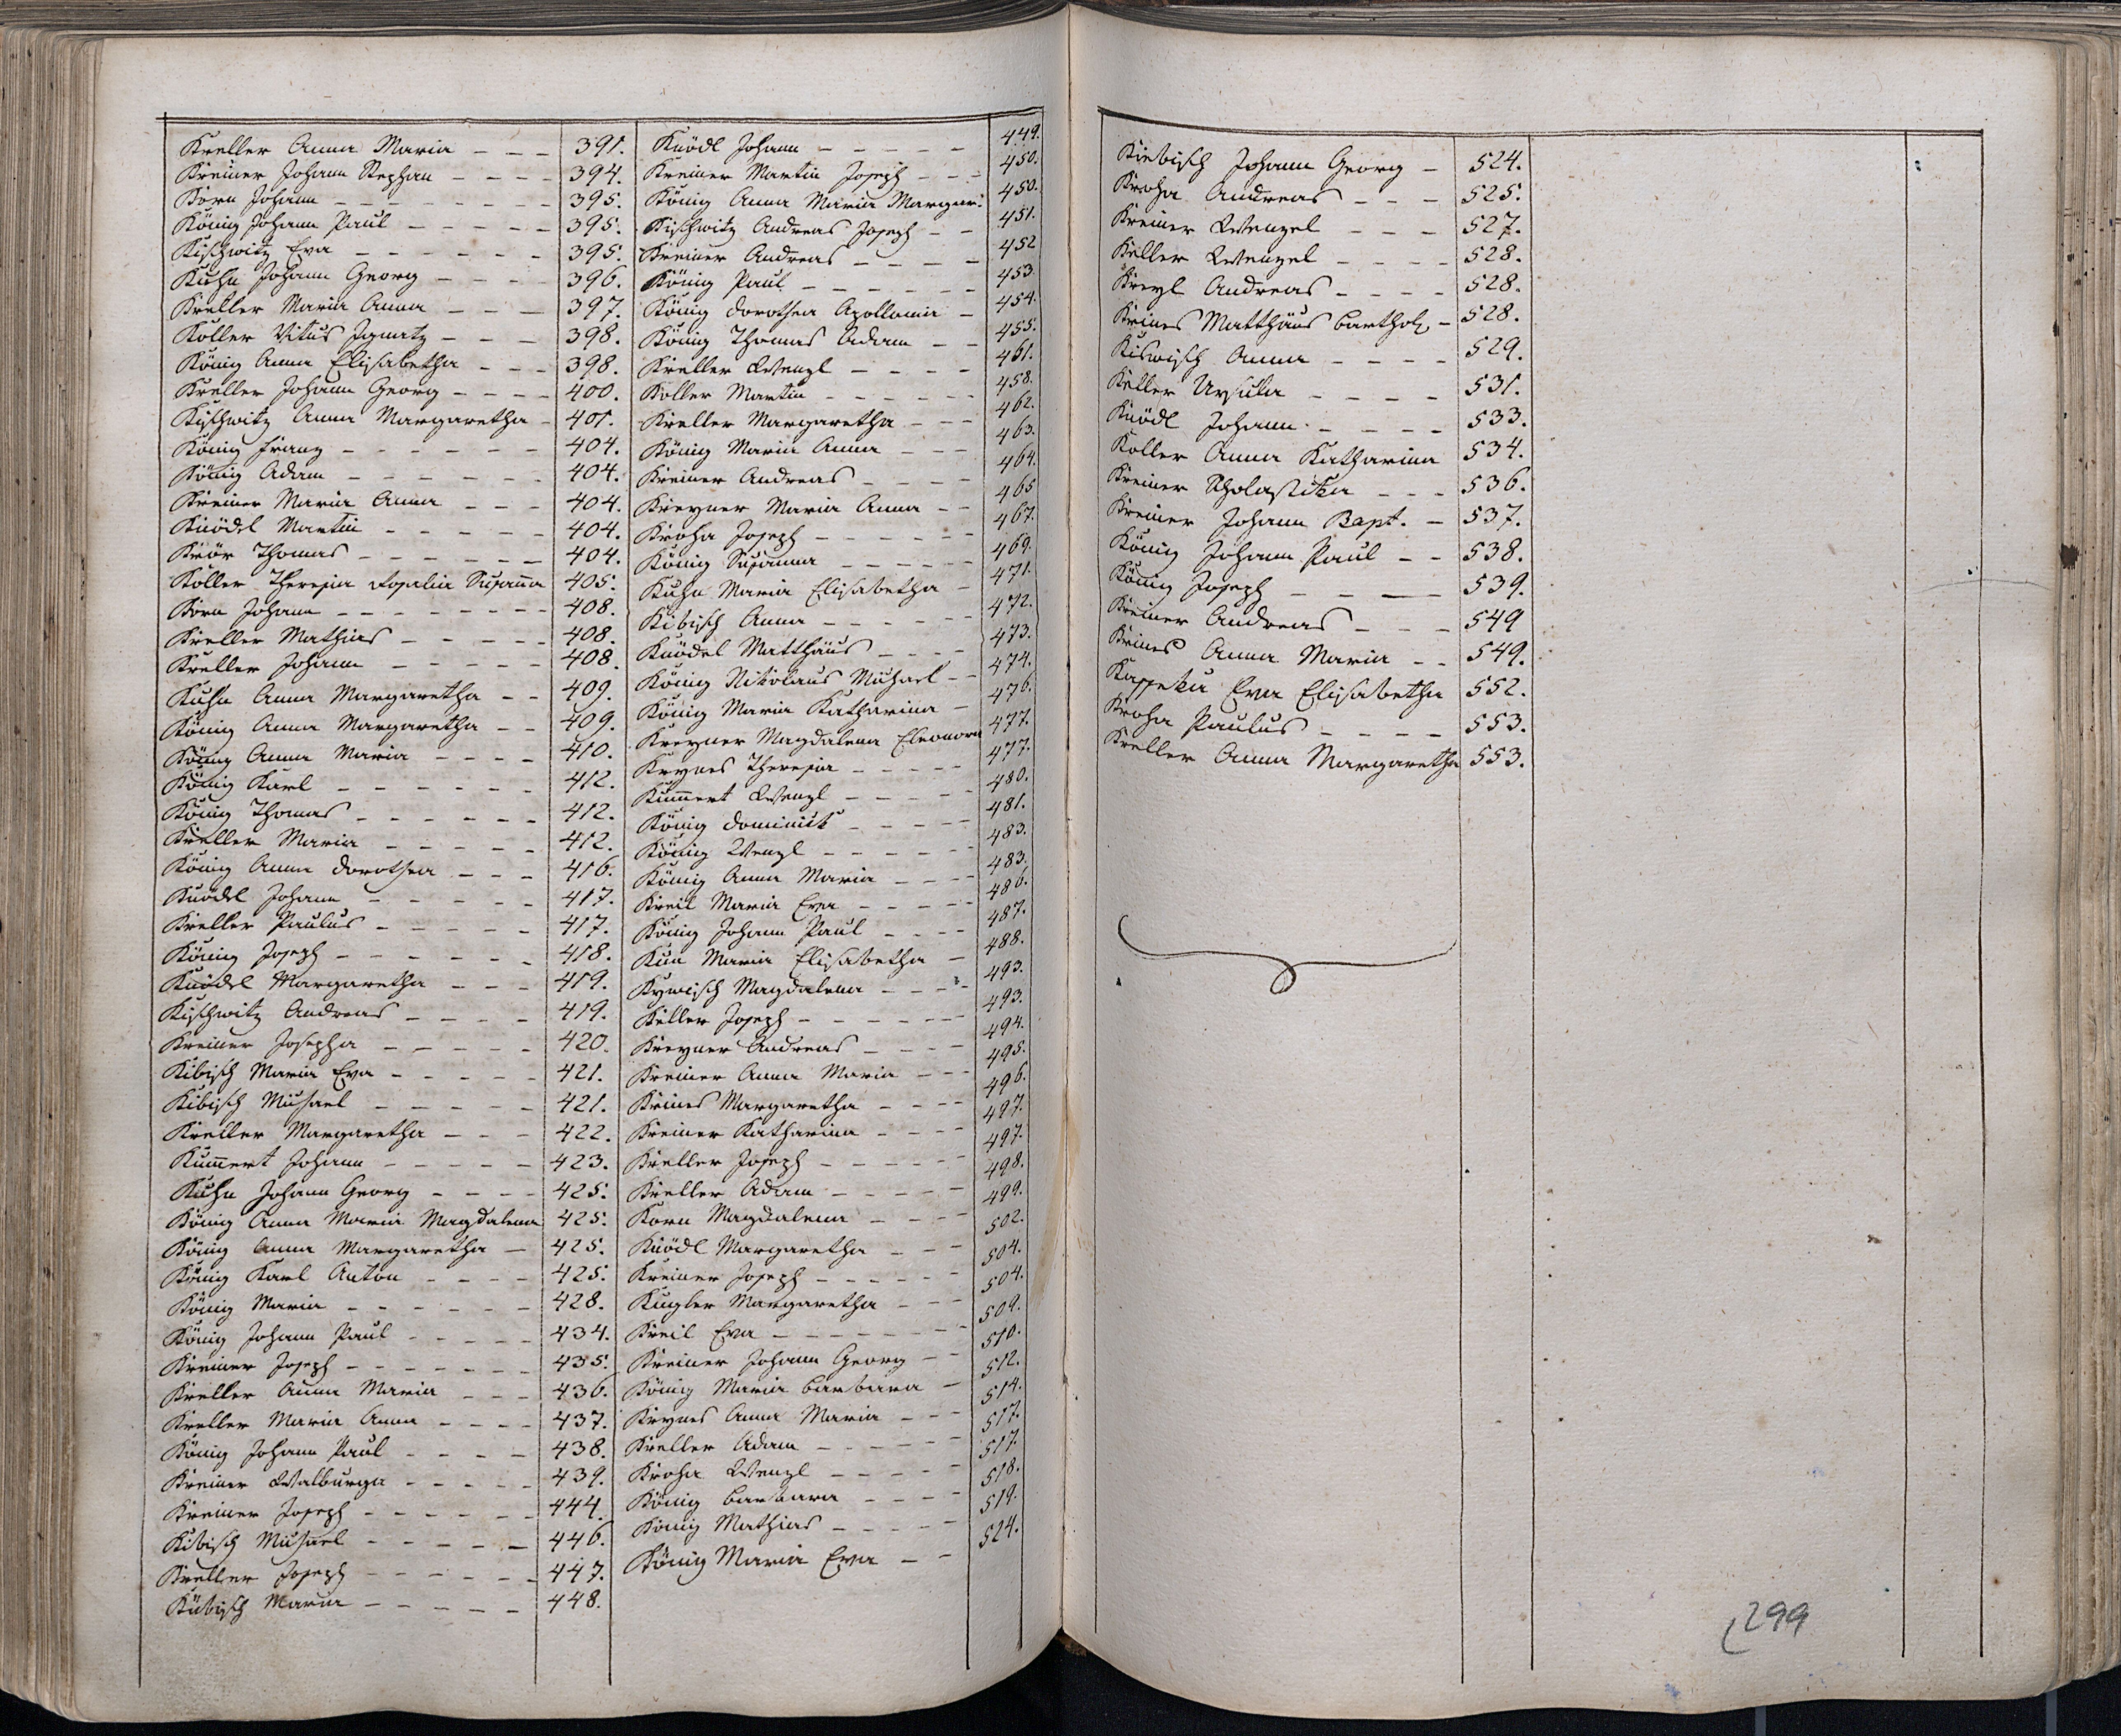 Kreller Anna Maria - - - 391.
Kreiner Johann Stephan - - - - 394.
Korn Johann - - - - - - - - 395.
König Johann Paul - - - - - 395.
Kischwitz Eva - - - - - - 395.
Kuhn Johann Georg - - - - 396.
Kreller Maria Anna - - - 397.
Koller Vitus Ignatz - - - 398.
König Anna Elisabetha - - - 398.
Kreller Johann Georg - - - - 400.
Kischwitz Anna Margaretha - 401.
König Franz - - - - - - 404.
König Adam - - - - - - 404.
Kreiner Maria Anna - - - 404.
Knödel Martin - - - - - 404.
Thomas - - - - - - 404.
Koller Theresia Rosalia Susanna 405.
Korn Johann - - - - - - - - 408.
Kreller Mathias - - - - - 408.
Kreller Johann - - - - - 408.
Kuhn Anna Margaretha - - 409.
König Anna Margaretha - - 409.
König Anna Maria - - - - 410.
König Karl - - - - - - 412.
König Thomas - - - - - - 412.
Kreller Maria - - - - - 412.
König Anna Dorothea - - - 416.
Knödel Johann - - - - - 417.
Kreller Paulus - - - - - 417.
König Joseph - - - - - - - 418.
Knödel Margaretha - - - 419.
Kischwitz Andreas - - - - 419.
Kreiner Josepha - - - - - 420.
Kibisch Maria Eva - - - - - 421.
Kibisch Michael - - - - - 421.
Kreller Margaretha - - - 422.
Kum̅ert Johann - - - - - 423.
Kuhn Johann Georg - - - - 425.
König Anna Maria Magdalena 425.
König Anna Margaretha - 425.
König Karl Anton - - - - 425.
König Maria - - - - - - 428.
König Johann Paul - - - - - 434.
Kreiner Joseph - - - - - - - 435.
Kreller Anna Maria - - - 436.
Kreller Maria Anna - - - - 437.
König Johann Paul - - - - 438.
Kreiner Walburga - - - - - 439.
Kreiner Joseph - - - - - - 444.
Kibisch Michael - - - - - 446.
Kreller Joseph - - - - - - 447.
Kübisch Maria - - - - - 448.
Knödl Johann - - - - - 449.
Kreiner Martin Joseph - - - 450.
König Anna Maria Margar: 450.
Kischwitz Andreas Joseph - - 451.
Kreiner Andreas - - - - 452
König Paul - - - - - - 453.
König Dorothea Apollonia - 454.
König Thomas Adam - - 455.
Kreller Wenzl - - - - 461.
Koller Martin - - - - - - 458.
Kreller Margaretha - - - 462.
König Maria Anna - - - 463.
Kreiner Andreas - - - - 464.
Kreyner Maria Anna - - 465
Kroha Joseph - - - - - - 467.
König Susanna - - - - - - 469.
Kuhn Maria Elisabetha - 471.
Kibisch Anna - - - - - - 472.
Knödel Matthäus - - - - 473.
König Nikolaus Michael - - 474.
König Maria Katharina - 476.
Kreyner Magdalena Eleonora 477.
Krynes Theresia - - - - - 477.
Kum̅ert Wenzl - - - - - 480.
König Dominik - - - - - 481.
König Wenzl - - - - - - 483.
König Anna Maria - - - - 483.
Kreil Maria Eva - - - - - 486.
König Johann Paul - - - - 487.
Kun Maria Elisabetha - 488.
Kywisch Magdalena - - - - 493.
Keller Joseph - - - - - - - 493.
Kreyner Andreas - - - - 494.
Kreiner Anna Maria - - - 495.
Krines Margaretha - - - - 496.
Kreiner Katharina - - - - 497.
Kreller Joseph - - - - - 497.
Kreller Adam - - - - - 498.
Korn Magdalena - - - - 499.
Knödl Margaretha - - - 502.
Kreiner Joseph - - - - - - 504.
Kugler Margaretha - - - 504.
Kreil Eva - - - - - - - - 509.
Kreiner Johann Georg - - 510.
König Maria Barbara - 512.
Krynes Anna Maria - - - 514.
Kreller Adam - - - - - - 517.
Kroha Wenzl - - - - - 517.
König Barbara - - - - 518.
König Mathias - - - - - 519.
König Maria Eva - - 524.
Kiebisch Johann Georg - 524.
Kroha Andreas - - - 525.
Kreiner Wenzel - - - 527.
Keller Wenzel - - - - 528.
Kreyl Andreas - - - - 528.
Krines Matthäus Barthol. - 528.
Kiswisch Anna - - - - 529.
Keller Ursula - - - - 531.
Knödl Johann - - - - 533.
Koller Anna Katharina 534.
Kreiner Scholastika - - - 536.
Kreiner Johann Bapt. - 537.
König Johann Paul - - 538.
König Joseph - - - 539.
Kreiner Andreas - - - 549
Krines Anna Maria - - 549.
Eva Elisabetha 552.
Kroha Paulus - - - - 553.
Kreller Anna Margaretha 553.
299